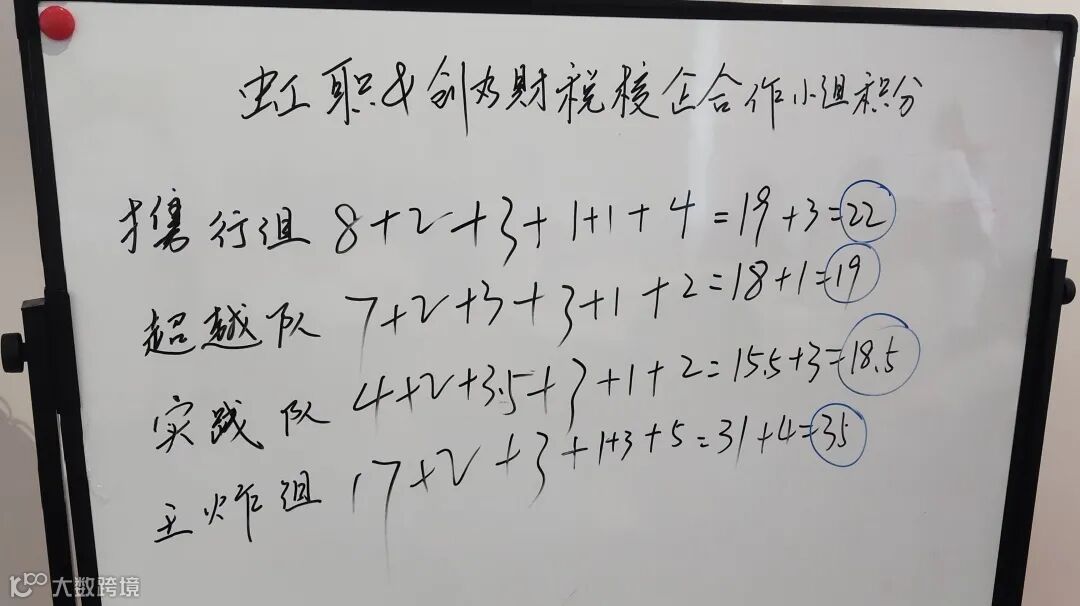 虹职&创为财税校企合作小组积分
携行组 8+2+3+1+1+4=19+3=22
超越队 7+2+3+3+1+2=18+1=19
实践队 4+2+3.5+3+1+2=15.5+3=18.5
王炸组 17+2+3+1+3+5=31+4=35
大数跨境